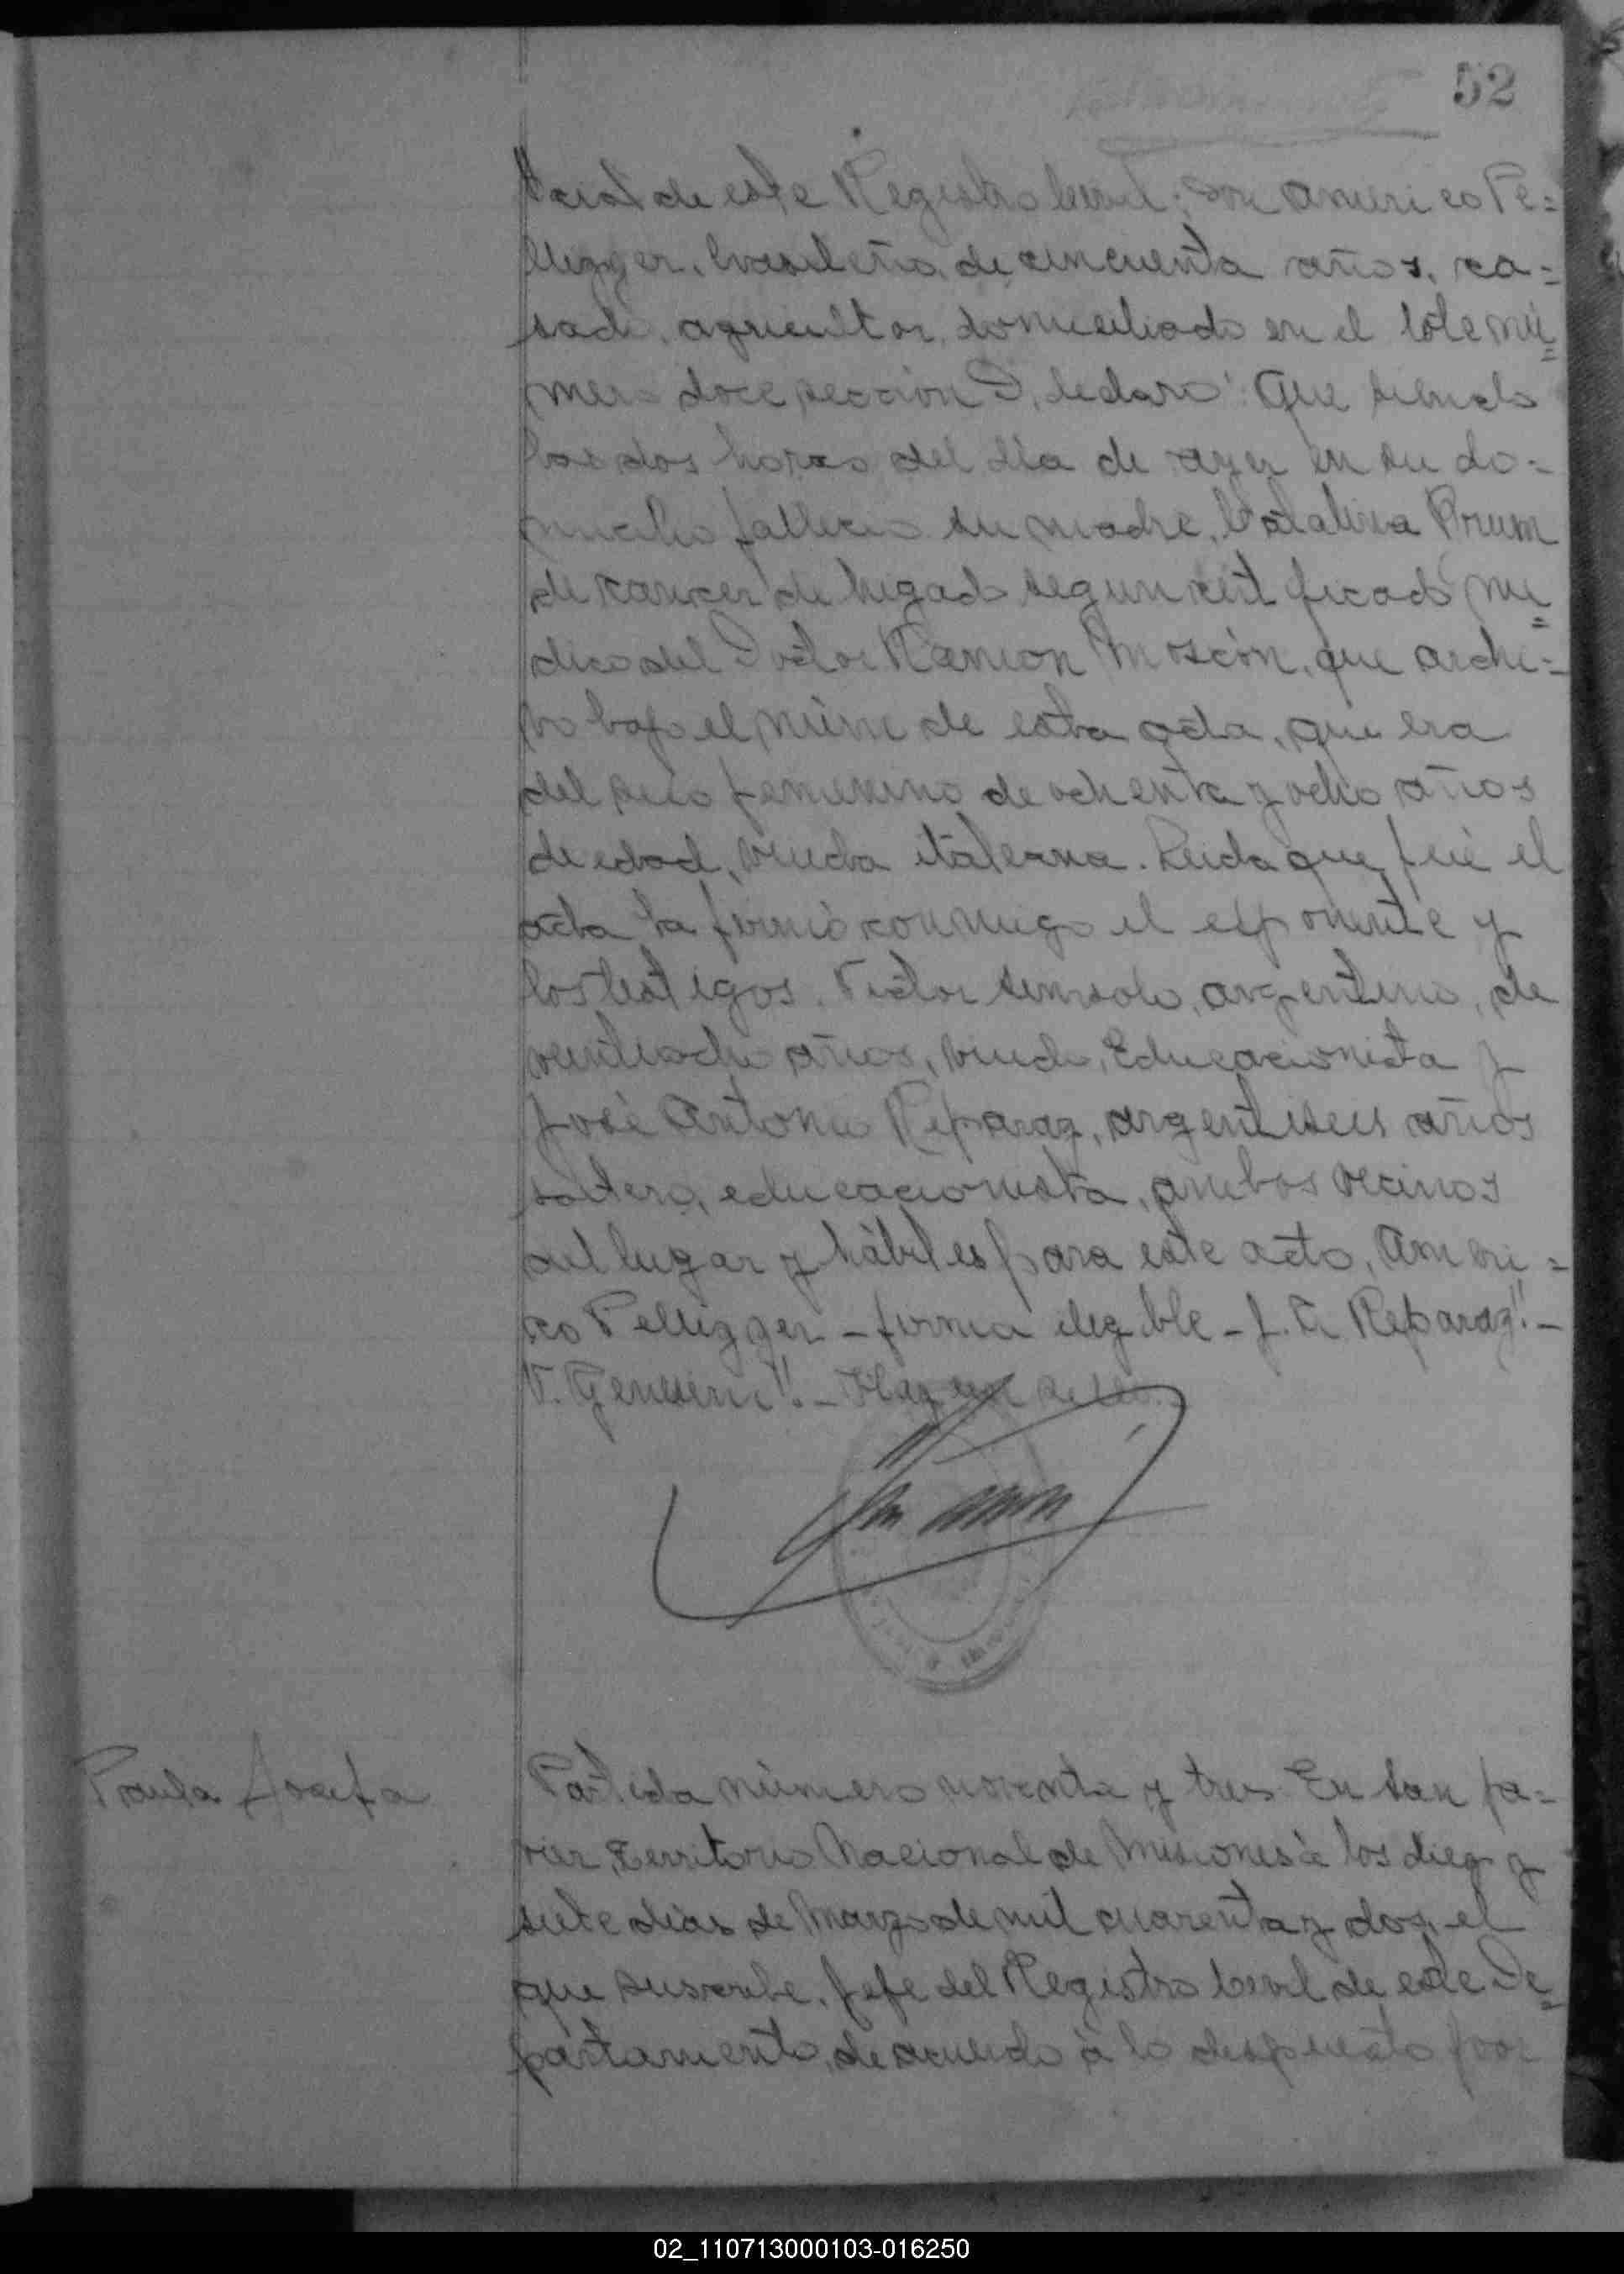 52
de este Registro Civil; Don Americo Pe=
llizzer, brasileño, de cincuenta años, ca=
sado, agricultor, domiciliado en el lote nú=
mero doce seccion D, declaro: Que siendo
las dos horas del dia de ayer en su do=
micilio fallecio su madre, Catalina Prum
de cancer de higado segun certificado mé=
dico del Doctor Ramon que archi=
vo bajo el núm de esta acta, que era
del sexo femenino de ochenta y ocho años
de edad, viuda italiana. Leida que fué el
acta la firmó conmigo el exponente y
los testigos. Victor argentino, de
veintiocho años, viudo, Educacionista y
José Antonio Reparaz, argentiseis años
soltero, educacionista, ambos vecinos
del lugar y hábiles para este acto, Ameri=
co Pellizzer - firma ilegible - J. A. Reparaz!! -
V. !! - Hay un sello.
Paula Josefa
Partida número noventa y tres. En San Ja=
vier, Territorio Nacional de Misiones á los diez y
siete dias de Marzo de mil cuarenta y dos, el
que suscribe, Jefe del Registro Civil de este De=
partamento, de acuerdo á lo despuesto por
02_110713000103-016250